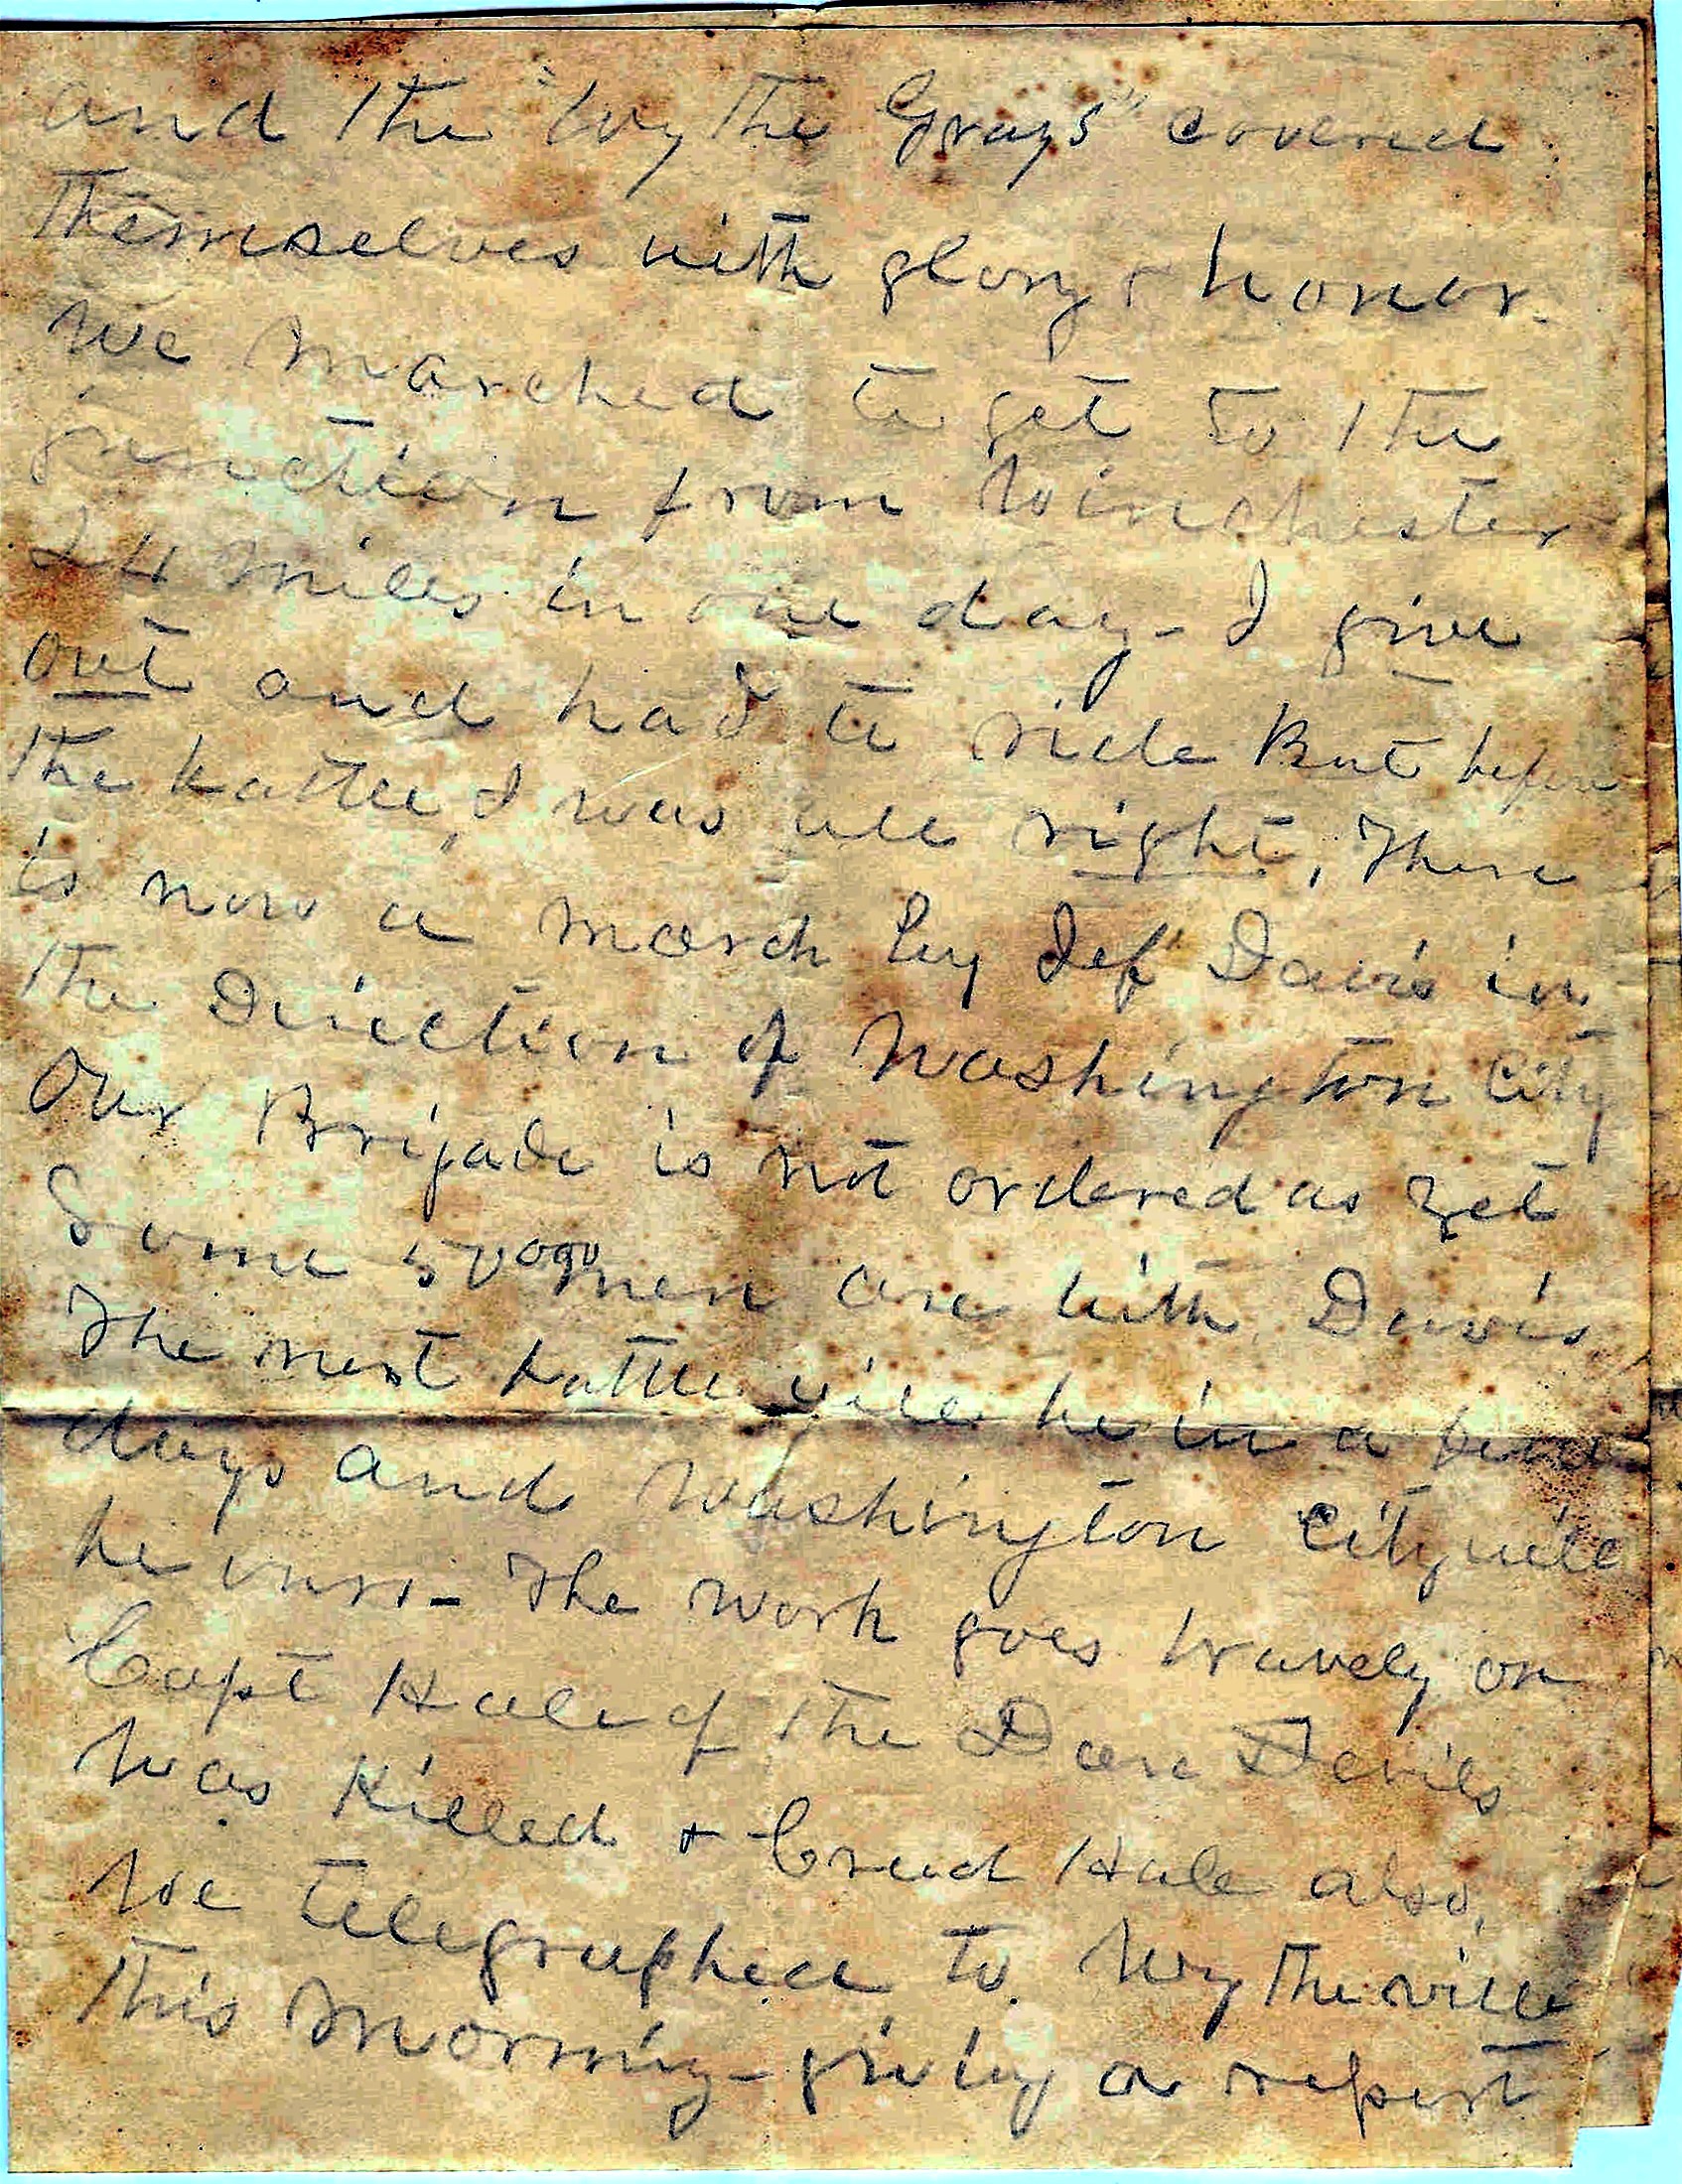 and the "Wythe Grays" covered
themselves with glory & honor.
We marched to get to the
junction from Winchester
24 miles in one day - I give
out and had to ride But before
the battle, I was all right, There
is now a march by Jef Davis in
the Direction of Washington City
Our Brigade is not ordered as yet
Some 50000 men are with Davis,
The next battle will be in a few
days and Washington City will
be ours - The work goes bravely on
Capt Hale of the Dare Devils
Was Killed & Creed Hale also,
We telegraphed to Wytheville
this morning - giving a report